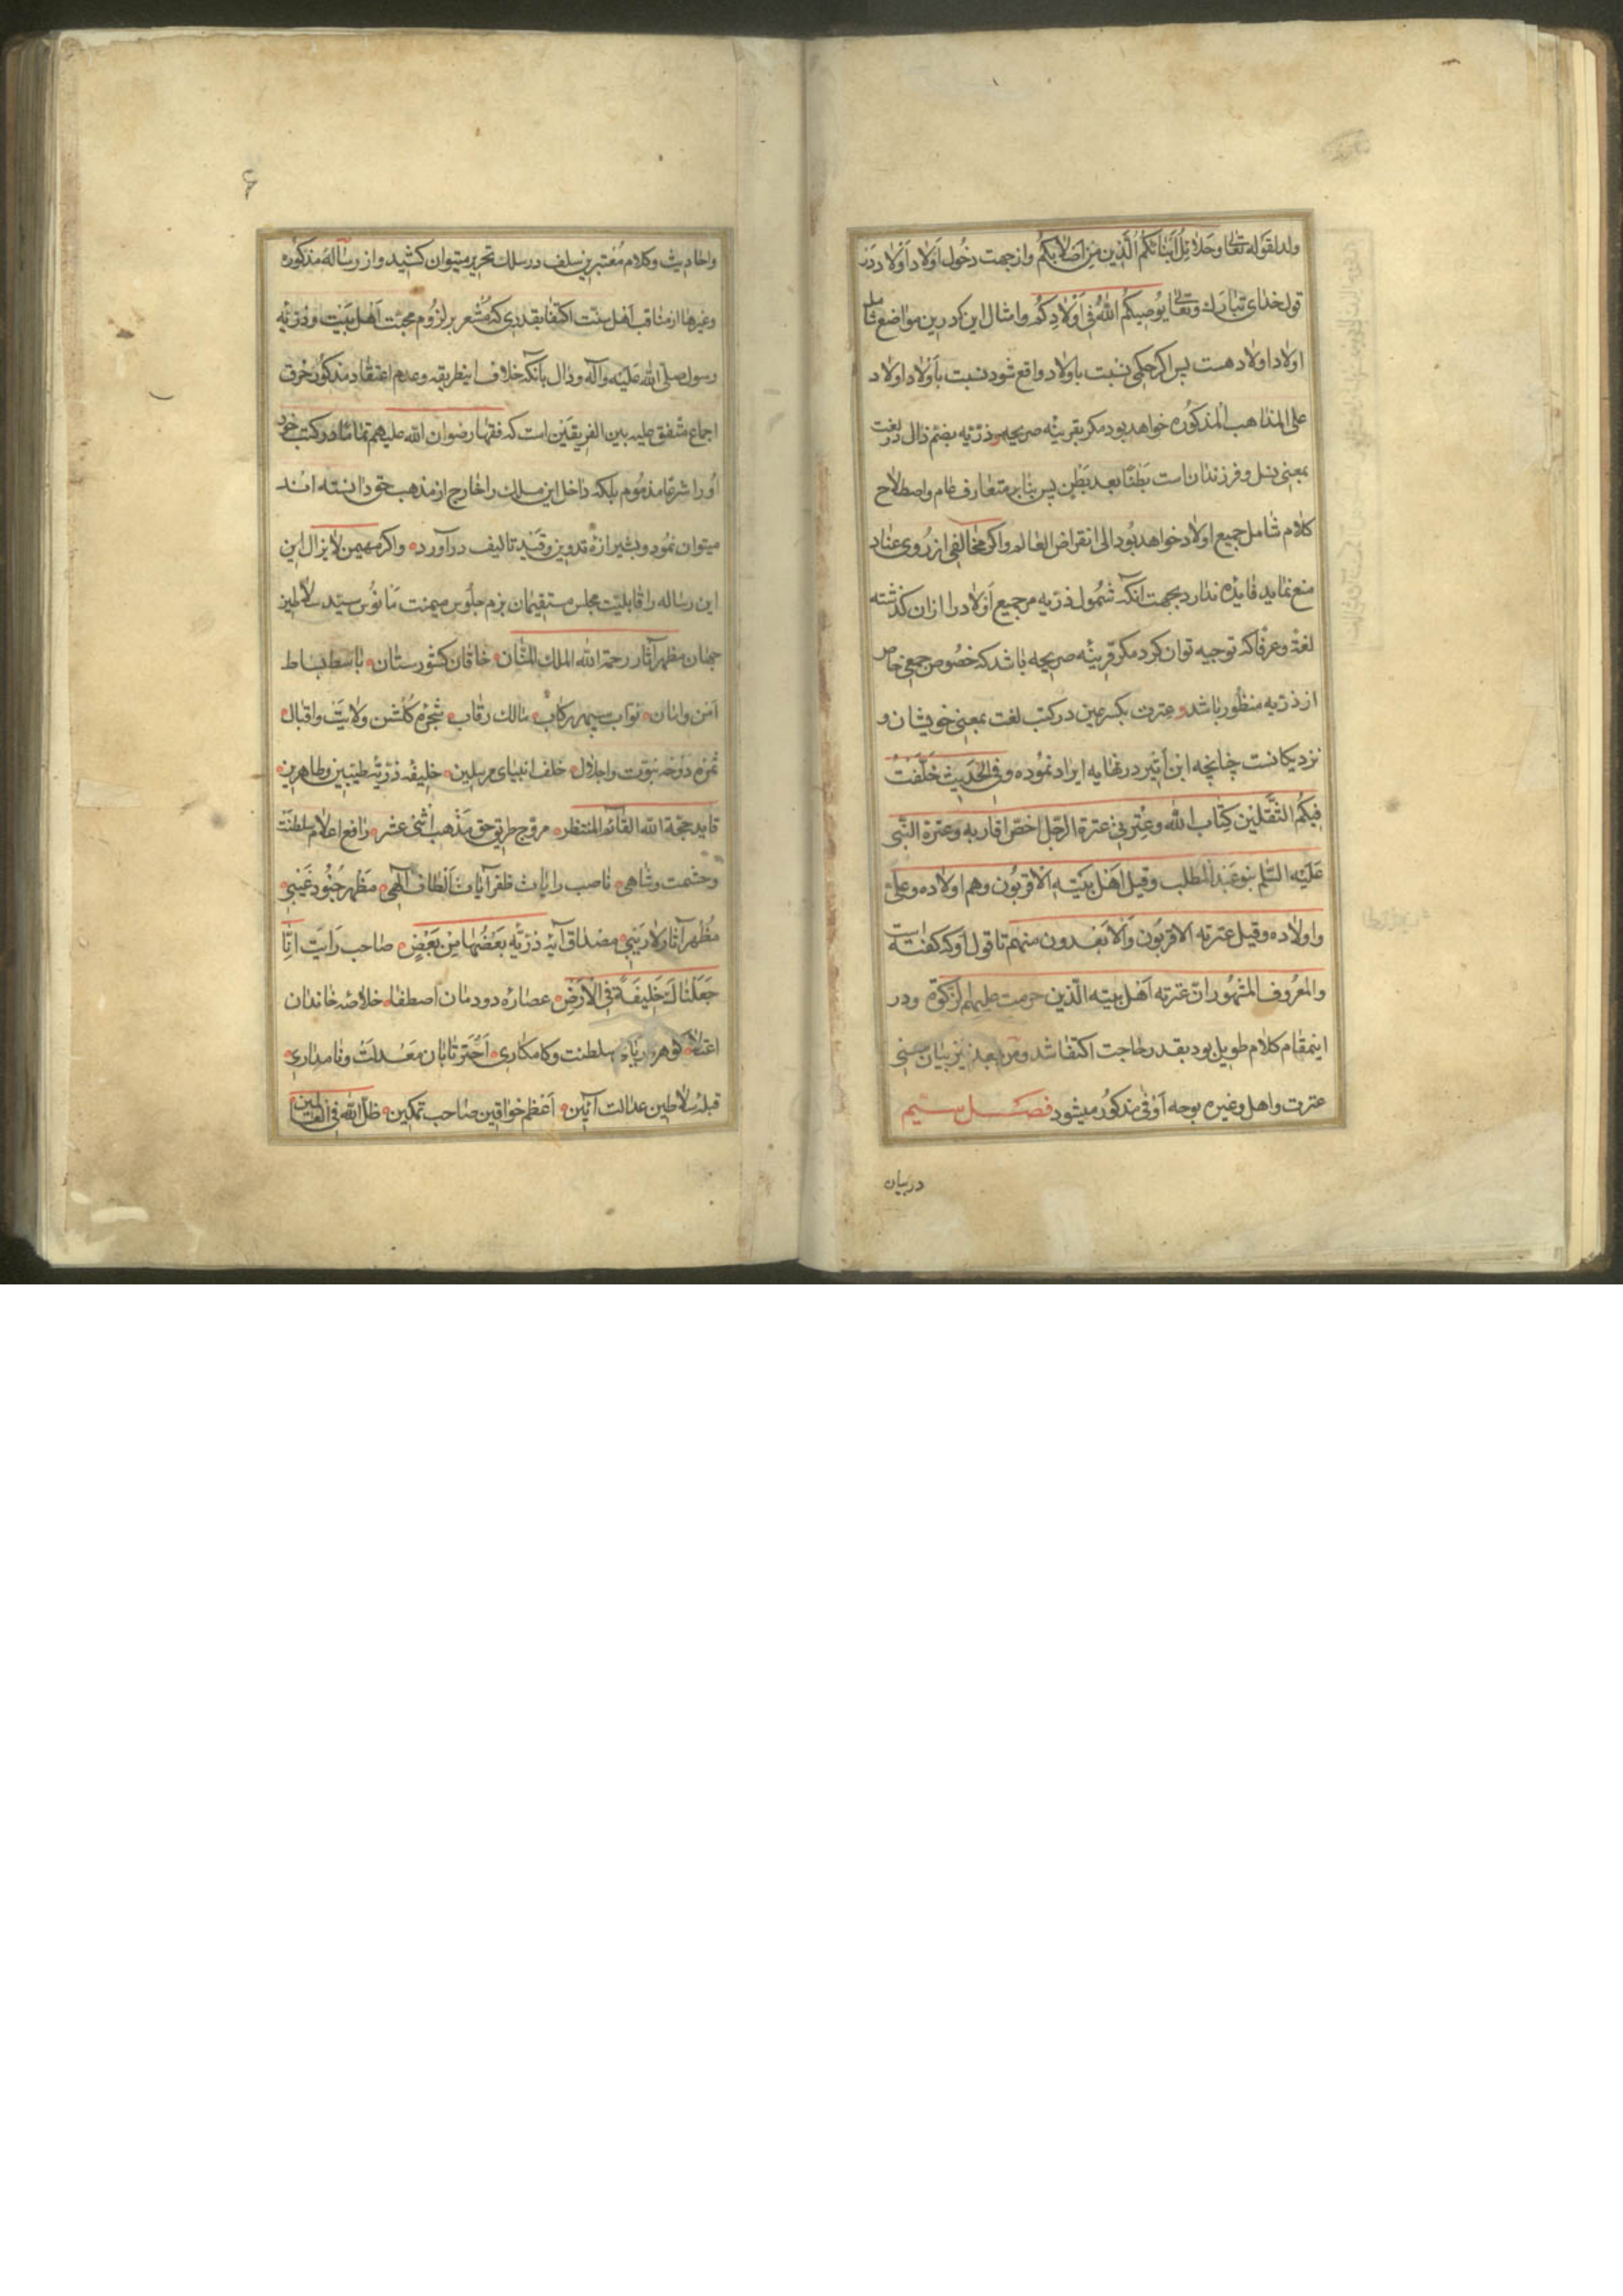 ولد لقوله تعالی وحلائل ابنائکم الذین من اصلابکم واز جهت دخول اولاد اولاد در
قول خدای تبارک وتعالی یوصیکم الله فی اولادکم وامثال این که درین مواضع شامل
اولاد اولاد هست پس اکر حکمی نسبت باولاد واقع شود نسبت باولاد اولاد
علی المذاهب المذکوره خواهد بود مکر بقرینه صریحه وذریه بضم ذال در لغت
بمعنی نسل وفرزندان است بطنا بعد بطن پس بنابر متعارف عام واصطلاح
کلام شامل جمیع اولاد خواهد بود الی انقراض العالم واکر مخالفی از روی عناد
منع نماید فایده ندارد بجهت آنکه شمول ذریه مر جمیع اولاد را ازان کذشته
لغة وعرفا که توجیه توان کرد مکر قرینه صریحه باشد که خصوص جمعی خاص
از ذریه منظور باشد وعترت بکسر عین در کتب لغت بمعنی خویشان و
نزدیکانست چنانچه ابن اثیر در نهایه ایراد نموده وفی الحدیث خلفت
فیکم الثقلین کتاب الله وعترتی عترة الرجل اخص اقاربه وعترة النبی
علیه السلم بنو عبد المطلب وقیل اهل بیته الاقربون وهم اولاده وعلی
واولاده وقیل عترته الاقربون والابعدون منهم تا قول او که کفته است
والمعروف المشهور ان عترته اهل بیته الذین حرمت علیهم الزکوة ودر
اینمقام کلام طویل بود بقدر حاجت اکتفا شد ومن بعد نیز بیان معنی
عترت واهل وغیره بوجه اوفی مذکور میشود فصل سیم
در بیان
۶
واحادیث وکلام معتبرین سلف در سلک تحریر میتوان کشید واز رساله مذکوره
وغیرها از مناقب اهل سنت اکتفا بقدری که مشعر بر لزوم محبت اهل بیت وذریه
رسول صلی الله علیه وآله ودال بآنکه خلاف اینطریقه وعدم اعتقاد مذکور خرق
اجماع متفق علیه بین الفریقین است که فقهاء رضوان الله علیهم تماما در کتب خود
او را شرعا مذموم بلکه داخل این مسلک را خارج از مذهب حق دانسته اند
میتوان نمود وبشیرازه تدوین وقید تالیف درآورد واکر مهیمن لایزال این
این رساله را قابلیت مجلس مستقیمان بزم جلوس میمنت مانوس سید سلاطین
جهان مظهر آثار رحمة الله الملک المنان خاقان کشورستان باسط بساط
امن وامان نواب سپهر رکاب مالک رقاب شجره کلشن ولایت واقبال
ثمره دوحه نبوت واجلال خلف انبیای مرسلین خلیفه ذریه طیبین وطاهرین
قاید حجة الله القائم المنتظر مروج طریق حق مذهب اثنی عشر رافع اعلام سلطنت
وحشمت وشاهی ناصب رایات ظفر آیات الطاف آلهی مظهر جنود غیبی
مظهر آثار لاریبی مصداق آیه ذریه بعضها من بعض صاحب رایت انا
جعلناک خلیفة فی الارض عصاره دودمان اصطفا خلاصه خاندان
اعتلا کوهر دریای سلطنت وکامکاری اختر تابان معدلت ونامداری
قبله سلاطین عدالت آئین اعظم خواقین صاحب تمکین ظل الله فی العالمین